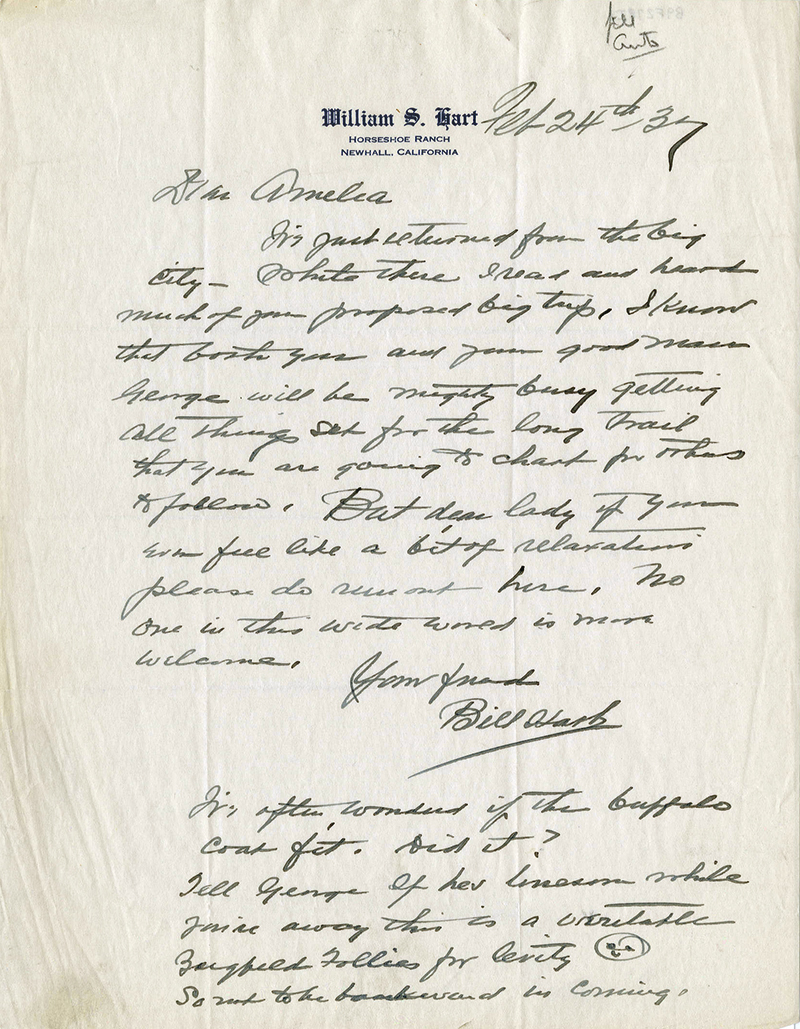 William S. Hart
HORSESHOE RANCH
NEWHALL, CALIFORNIA
Feb 24th/37
Dear Amelia
I've just returned from the big
City – While there I read and heard
much of your proposed big trip, I know
that both you and your good man
George will be mighty busy getting
all things set for the long trail
that you are going to chart for others
to follow. But dear lady if you
ever feel like a bit of relaxation
please do run out here. No
one in this wide world is more
welcome.
Your friend
Bill Hart
I've often wondered if the buffalo
coat fit. Did it?
Tell George If he's lonesome while
you're away this is a veritable
Zeigfeld Follies for levity
So not to be backward in coming.